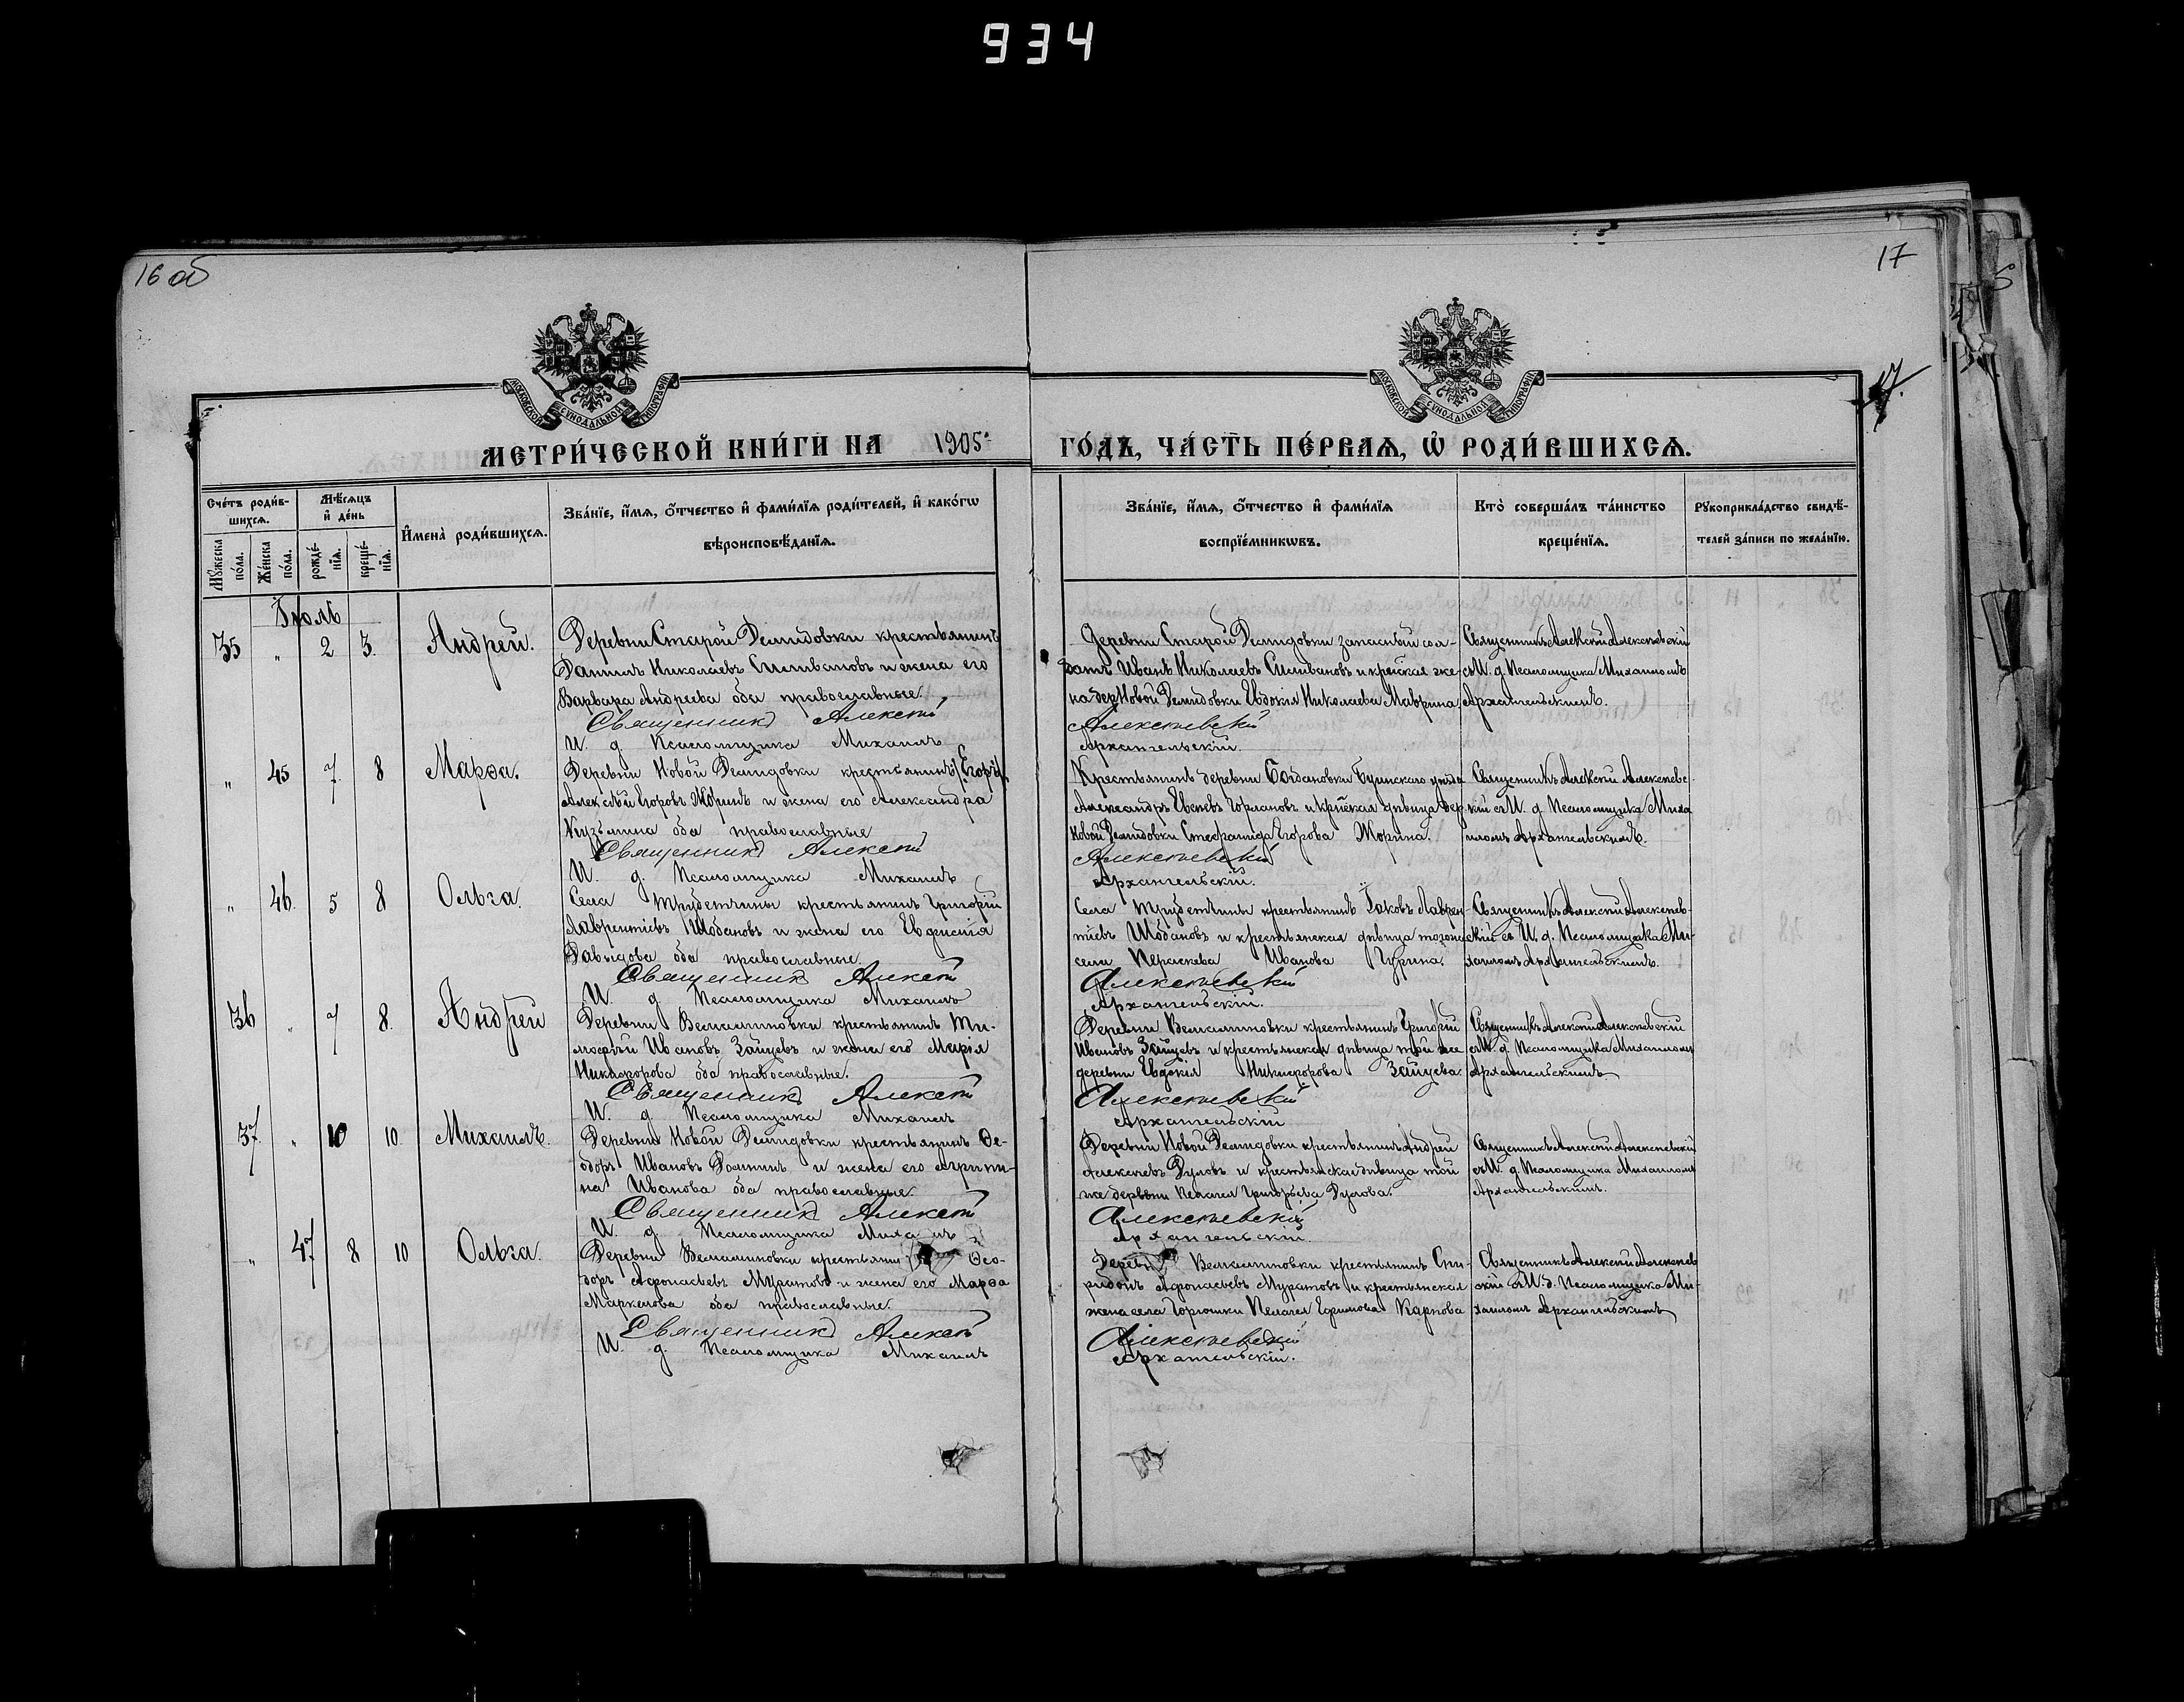 934
16 об
17
17.
МОСКОВСКОЙ СУНОДАЛЬНОЙ ТИПОГРАФІИ
МОСКОВСКОЙ СУНОДАЛЬНОЙ ТИПОГРАФІИ
МЕТРИ́ЧЕСКОЙ КНИ́ГИ НА 1905. ГО́ДЪ, ЧА́СТЬ ПЕ́РВАѦ, Ѡ҆ РОДИ́ВШИХСѦ.
Сче́тъ роди́в-
шихсѧ.
Мѣ́сѧцъ
и҆ де́нь
И҆мена̀ роди́вшихсѧ.
Зва́нїе, и҆́мѧ, ѻ҆́тчество и҆ фами́лїѧ роди́телей, и҆ како́гѡ
вѣроисповѣ́данїѧ.
Мꙋ́жеска
по́ла.
Же́нска
по́ла.
рожде́-
нїѧ.
креще́-
нїѧ.
Зва́нїе, и҆́мѧ, ѻ҆́тчество и҆ фами́лїѧ
воспрїе́мникѡвъ.
Кто̀ соверша́лъ та́инство
креще́нїѧ.
Рꙋкоприкла́дство свидѣ́-
телей за́писи по жела́нїю.
Іюль
35 " 2 3. Андрей.
Деревни Старой Демидовки крестьянинъ
Даниилъ Николаевъ Силивановъ и жена его
Варвара Андреева оба православные.
Священникъ Алексій
И. д. Псаломщика Михаилъ
Деревни Старой Демидовки запасный сол-
датъ Иванъ Николаевъ Силивановъ и крестская же-
на дер Новой Демидовки Евдокія Николаева Маврина
Алексѣевскій
Архангельскій.
Священникъ Алексій Алексѣевскій
съ И. д. Псаломщика Михаиломъ
Архангельскимъ.
" 45 7 8 Марѳа.
Деревни Новой Демидовки крестьянинъ (Егоръ)
Алексѣй Егоровъ Жоринъ и жена его Александра
Кузьмина оба православные
Священникъ Алексій
И. д. Псаломщика Михаилъ
Крестьянинъ деревни Богдановки Буинскаго уѣзда
Александръ Горлановъ и крестская дѣвица дер
Новой Демидовки Стефанида Егорова Жорина.
Алексѣевскій
Архангельскій.
Священникъ Алексій Алексѣевс-
кій съ И. д. Псаломщика Миха
иломъ Архангельскимъ.
" 46. 5 8 Ольга.
Села Трубетчины крестьянинъ Григорій
Лаврентіевъ Шобановъ и жена его Евфимія
Давыдова оба православные.
Священникъ Алексій
И. д. Псаломщика Михаилъ
Села Трубетчины крестьянинъ Іаковъ Лаврен-
тіевъ Шобановъ и крестьянская дѣвица тогоже
села Параскева Иванова Гурина.
Алексѣевскій
Архангельскій.
Священникъ Алексій Алексѣев-
скій съ И. д. Псаломщика Ми-
хаиломъ Архангельскимъ.
36 " 7 8. Андрей
Деревни Вельяминовки крестьянинъ Ти-
моѳей Ивановъ Зайцевъ и жена его Марія
Никифорова оба православные.
Священникъ Алексій
И. д. Псаломщика Михаилъ
Деревни Вельяминовки крестьянинъ Григорій
Ивановъ Зайцевъ и крестьянская дѣвица той же
деревни Евдокія Никифорова Зайцева.
Алексѣевскій
Архангельскій
Священникъ Алексій Алексѣевскій
съ И. д. Псаломщика Михаиломъ
Архангельскимъ
37. " 10 10. Михаилъ.
Деревни Новой Демидовки крестьянинъ Ѳе-
одоръ Ивановъ Фоминъ и жена его Агрипи-
на Иванова оба православные.
Священникъ Алексій
И. д. Псаломщика Михаилъ
Деревни Новой Демидовки крестьянинъ Андрей
Алексѣевъ Дуловъ и крестьянская дѣвица той
же деревни Пелагея Григорьева Дулова.
Алексѣевскій
Архангельскій.
Священникъ Алексій Алексѣевскій
съ И. д. Псаломщика Михаиломъ
Архангельскимъ.
" 47. 8 10 Ольга.
Деревни Вельяминовки крестьянин Ѳео-
доръ Афонасьевъ Муратовъ и жена его Марѳа
Маркелова оба православные.
Священникъ Алексій
И. д. Псаломщика Михаилъ
Деревни Вельяминовки крестьянинъ Спи-
ридонъ Афонасьевъ Муратовъ и крестьянская
жена села Горюшки Пелагея Ефимова Карпова
Алексѣевскій
Архангельскій.
Священникъ Алексій Алексѣев
скій съ И. д. Псаломщика Ми-
хаиломъ Архангельскимъ